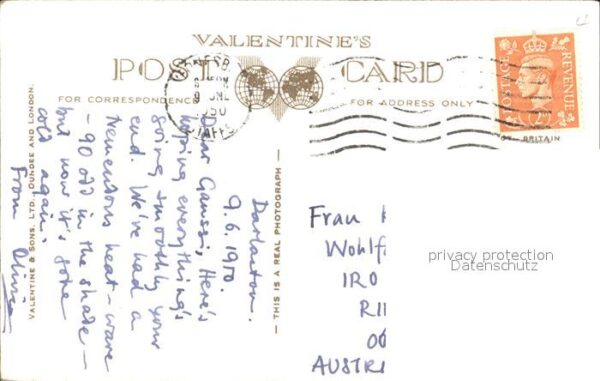 VALENTINE'S
POST CARD
FOR CORRESPONDENCE
FOR ADDRESS ONLY
POSTAGE REVENUE
BRITAIN
JNE
STAFFS
VALENTINE & SONS, LTD. DUNDEE AND LONDON.
THIS IS A REAL PHOTOGRAPH
Darlaston.
9.6.1950.
Dear Gaussi, Here's
hoping everything's
going smoothly your
end. We've had a
tremendous heat-wave
- 90 odd in the shade -
but now it's gone
cold again.
From Olivia
Frau
Wohlf
IRO
RI
AUSTRI
privacy protection
Datenschutz